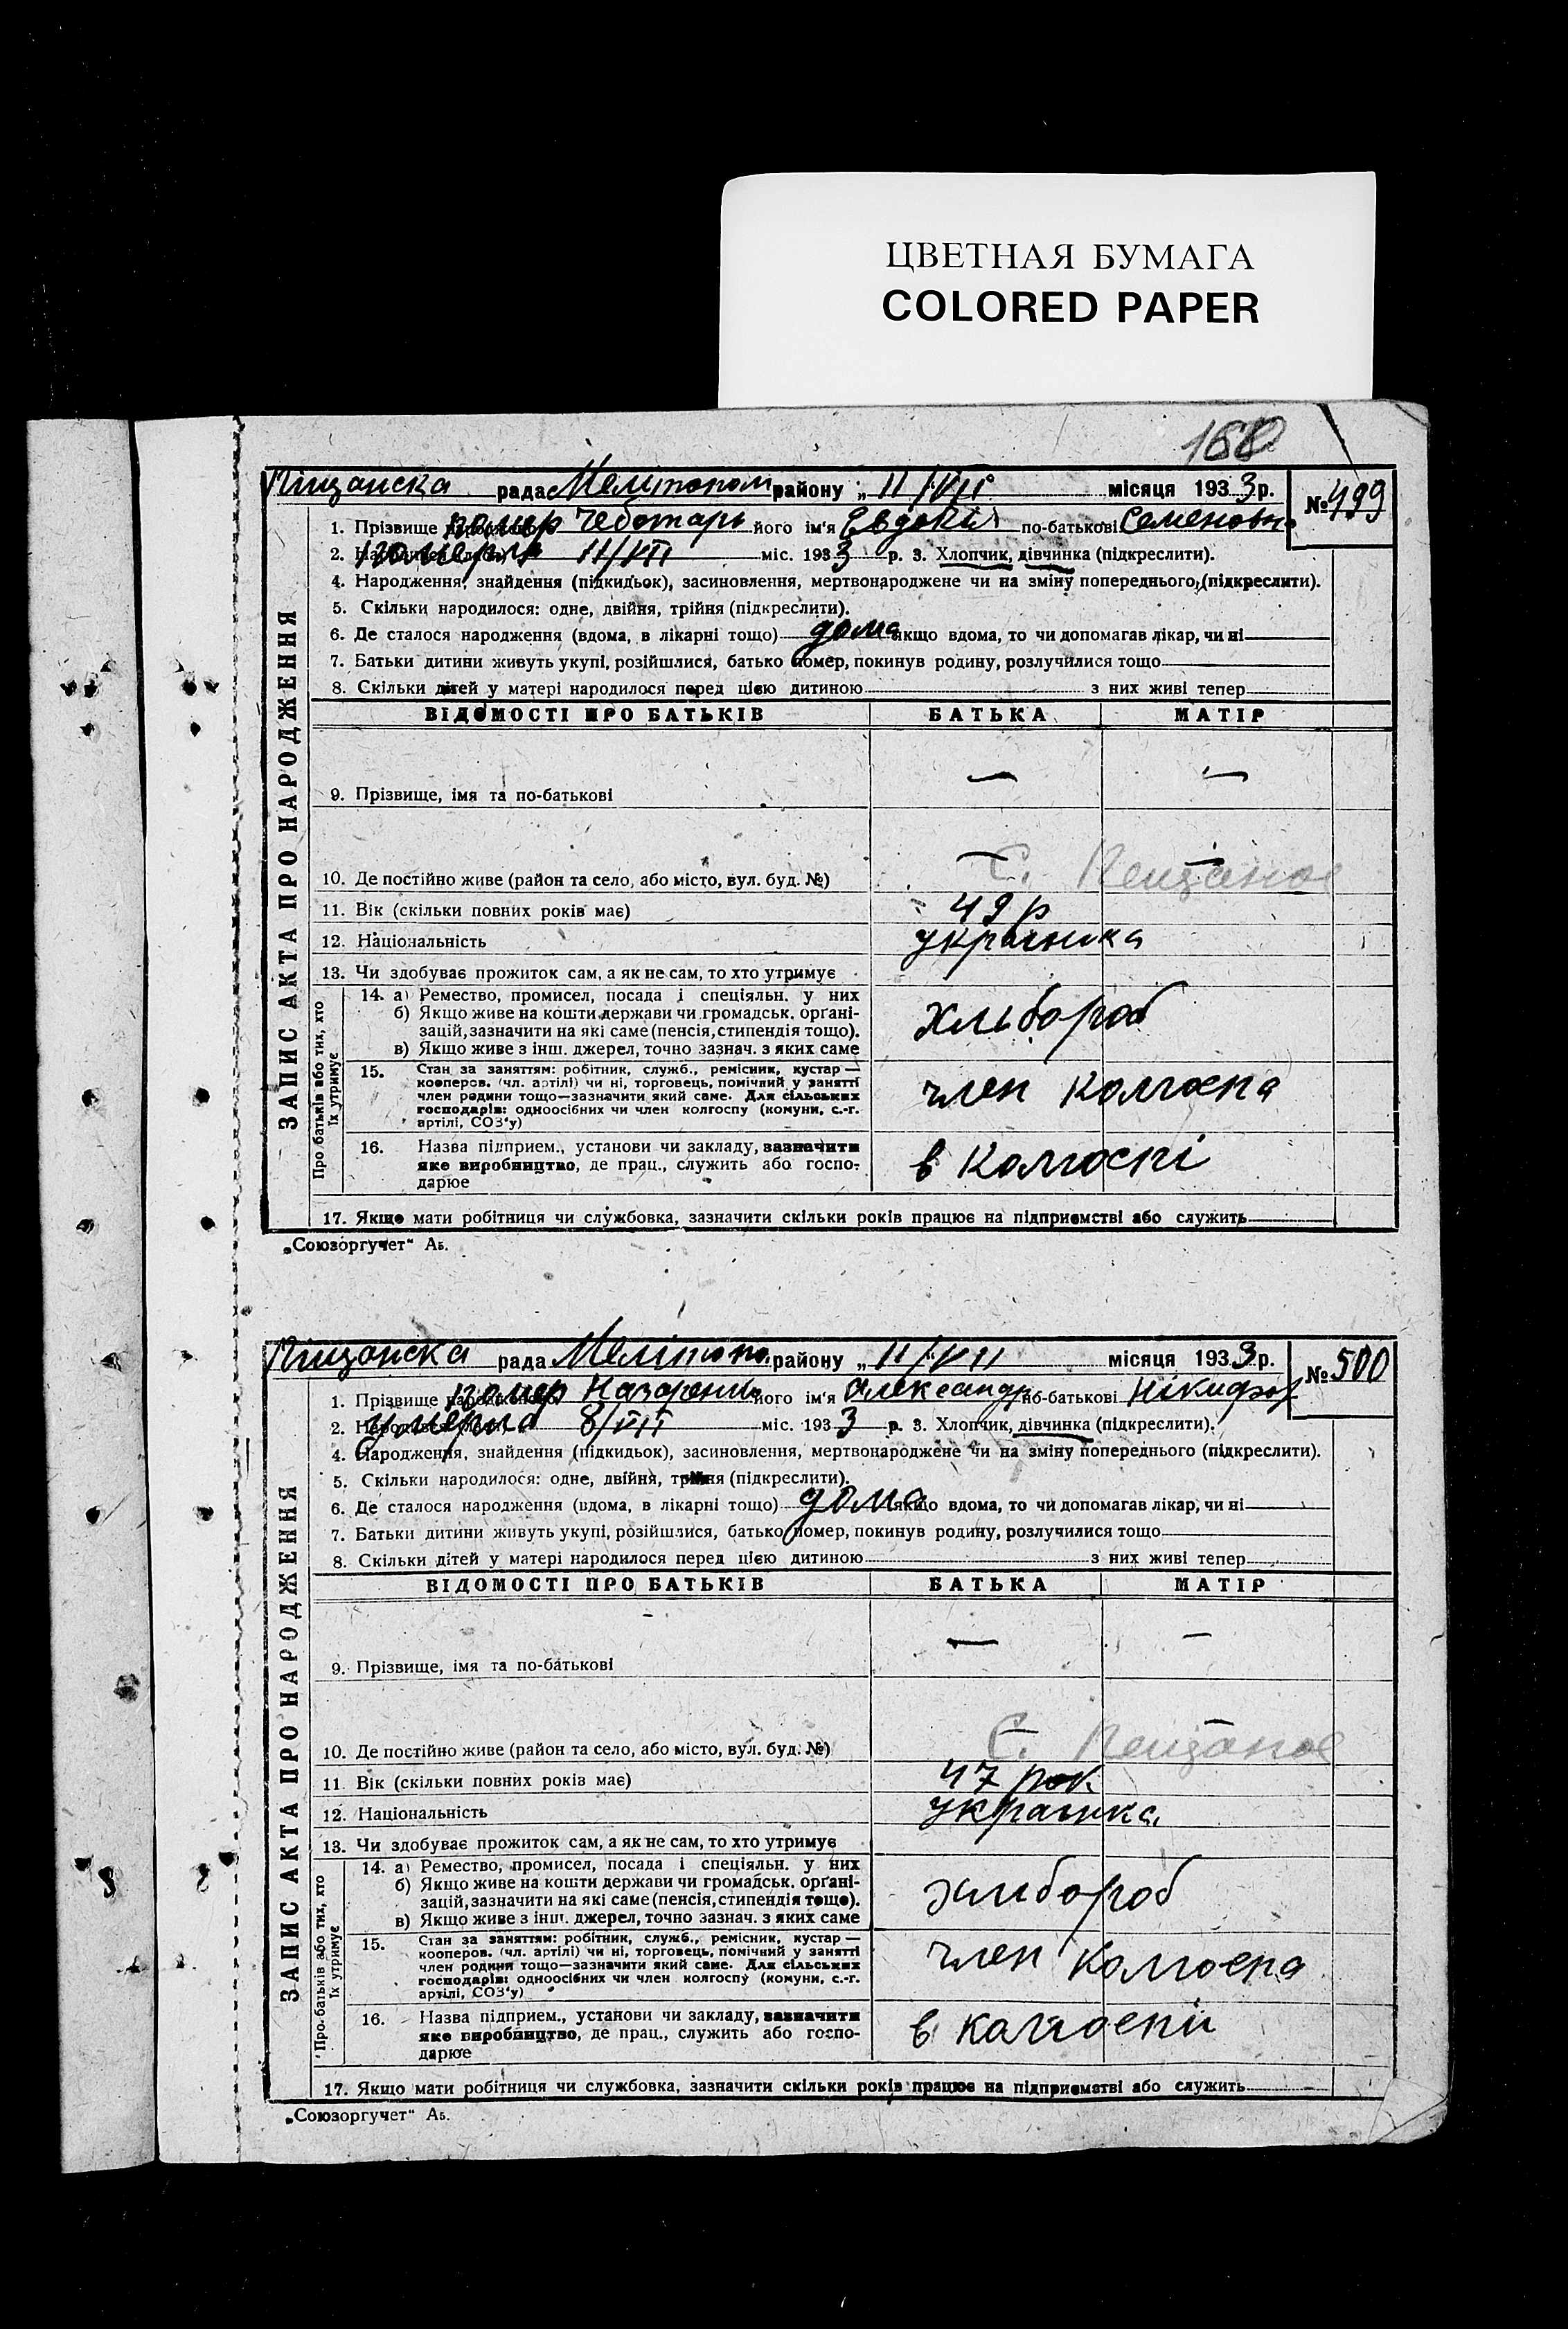 ЦВЕТНАЯ БУМАГА
COLORED PAPER
168
Піщанска рада Мелітопол району „ 11/VII місяця 1933 р. № 499
1. Прізвище помер Чеботарь його ім'я Евдокія по-батькові Семеновна
2. померла 11/VII міс. 1933 р. 3. Хлопчик, дівчинка (підкреслити).
4. Народження, знайдення (підкидьок), засиновлення, мертвонароджене чи на зміну попереднього (підкреслити).
5. Скільки народилося: одне, двійня, трійня (підкреслити).
6. Де сталося народження (вдома, в лікарні тощо) дома якщо вдома, то чи допомагав лікар, чи ні
7. Батьки дитини живуть укупі, розійшлися, батько помер, покинув родину, розлучилися тощо
8. Скільки дітей у матері народилося перед цією дитиною з них живі тепер
ЗАПИС АКТА ПРО НАРОДЖЕННЯ
ВІДОМОСТІ ПРО БАТЬКІВ БАТЬКА МАТІР
9. Прізвище, імя та по-батькові — —
10. Де постійно живе (район та село, або місто, вул. буд. №) — С. Пещаное
11. Вік (скільки повних років має) 49 р
12. Національність українка
13. Чи здобуває прожиток сам, а як не сам, то хто утримує
Про батьків або тих, хто їх утримує
14. а) Ремество, промисел, посада і спеціяльн. у них
б) Якщо живе на кошти держави чи громадськ. орґані-
зацій, зазначити на які саме (пенсія, стипендія тощо).
в) Якщо живе з інш. джерел, точно зазнач. з яких саме
хльбороб
15. Стан за заняттям: робітник, служб., ремісник, кустар —
кооперов. (чл. артілі) чи ні, торговець, помічний у занятті
член родини тощо—зазначити який саме. Для сільських
господарів: одноосібних чи член колгоспу (комуни, с.-г.
артілі, СОЗ'у)
член колгоспа
16. Назва підприєм., установи чи закладу, зазначити
яке виробництво, де прац., служить або госпо-
дарює
в колгоспі
17. Якщо мати робітниця чи службовка, зазначити скільки років працює на підприємстві або служить
„Союзоргучет“ Аб.
Піщанска рада Меліто по. району „ 11/VII місяця 1933 р. № 500
1. Прізвище помер Назаренко його ім'я Александр по-батькові Нікифор
2. умерла 8/VII міс. 1933 р. 3. Хлопчик, дівчинка (підкреслити).
4. Народження, знайдення (підкидьок), засиновлення, мертвонароджене чи на зміну попереднього (підкреслити).
5. Скільки народилося: одне, двійня, трійня (підкреслити).
6. Де сталося народження (вдома, в лікарні тощо) дома якщо вдома, то чи допомагав лікар, чи ні
7. Батьки дитини живуть укупі, розійшлися, батько помер, покинув родину, розлучилися тощо
8. Скільки дітей у матері народилося перед цією дитиною з них живі тепер
ЗАПИС АКТА ПРО НАРОДЖЕННЯ
ВІДОМОСТІ ПРО БАТЬКІВ БАТЬКА МАТІР
9. Прізвище, імя та по-батькові — —
10. Де постійно живе (район та село, або місто, вул. буд. №) С. Пещаное
11. Вік (скільки повних років має) 47 рок
12. Національність українка
13. Чи здобуває прожиток сам, а як не сам, то хто утримує
Про батьків або тих, хто їх утримує
14. а) Ремество, промисел, посада і спеціяльн. у них
б) Якщо живе на кошти держави чи громадськ. орґані-
зацій, зазначити на які саме (пенсія, стипендія тощо).
в) Якщо живе з інш. джерел, точно зазнач. з яких саме
хлибороб
15. Стан за заняттям: робітник, служб., ремісник, кустар —
кооперов. (чл. артілі) чи ні, торговець, помічний у занятті
член родини тощо—зазначити який саме. Для сільських
господарів: одноосібних чи член колгоспу (комуни, с.-г.
артілі, СОЗ'у)
член колгоспа
16. Назва підприєм., установи чи закладу, зазначити
яке виробництво, де прац., служить або госпо-
дарює
в колгоспи
17. Якщо мати робітниця чи службовка, зазначити скільки років працює на підприємстві або служить
„Союзоргучет“ Аб.